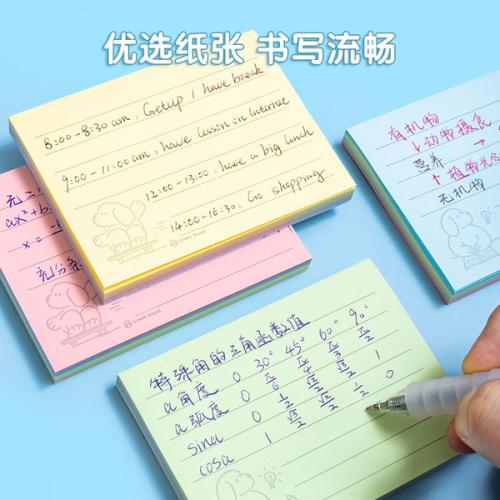 优选纸张 书写流畅
8:00-8:30am: Getup / have break
9:00-11:00am: have lesson on Internet
12:00-13:00: have a big lunch
14:00-16:30: Go shopping
Green Travel
有机物
↓动物摄食
营养
↑植物
无机物
ax²+b
x =
充分条
Green Travel
特殊角的三角函数值
a角度 0 30° 45° 60° 90°
a弧度 0 π/6 π/4 π/3 π/2
sina 0 1/2 √2/2 √3/2 1
cosa 1 √3/2 √2/2 1/2 0